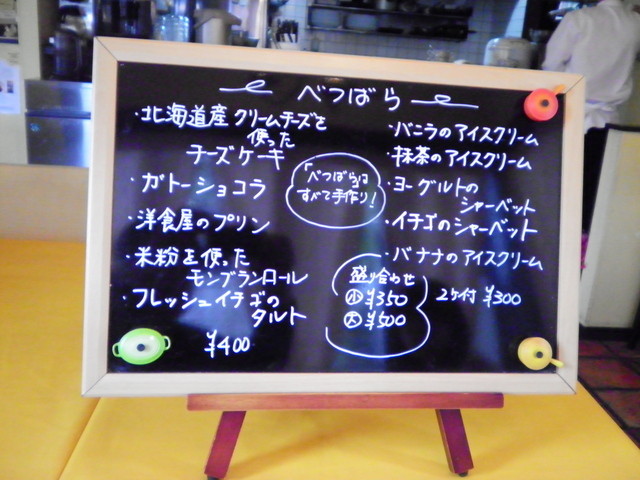 べつばら
・北海道産クリームチーズを
使った
チーズケーキ
・ガトーショコラ
・洋食屋のプリン
・米粉を使った
モンブランロール
・フレッシュイチゴの
タルト
¥400
「べつばら」は
すべて手作り!
・バニラのアイスクリーム
・抹茶のアイスクリーム
・ヨーグルトの
シャーベット
・イチゴのシャーベット
・バナナのアイスクリーム
2ケ付 ¥300
盛り合わせ
小 ¥350
大 ¥500